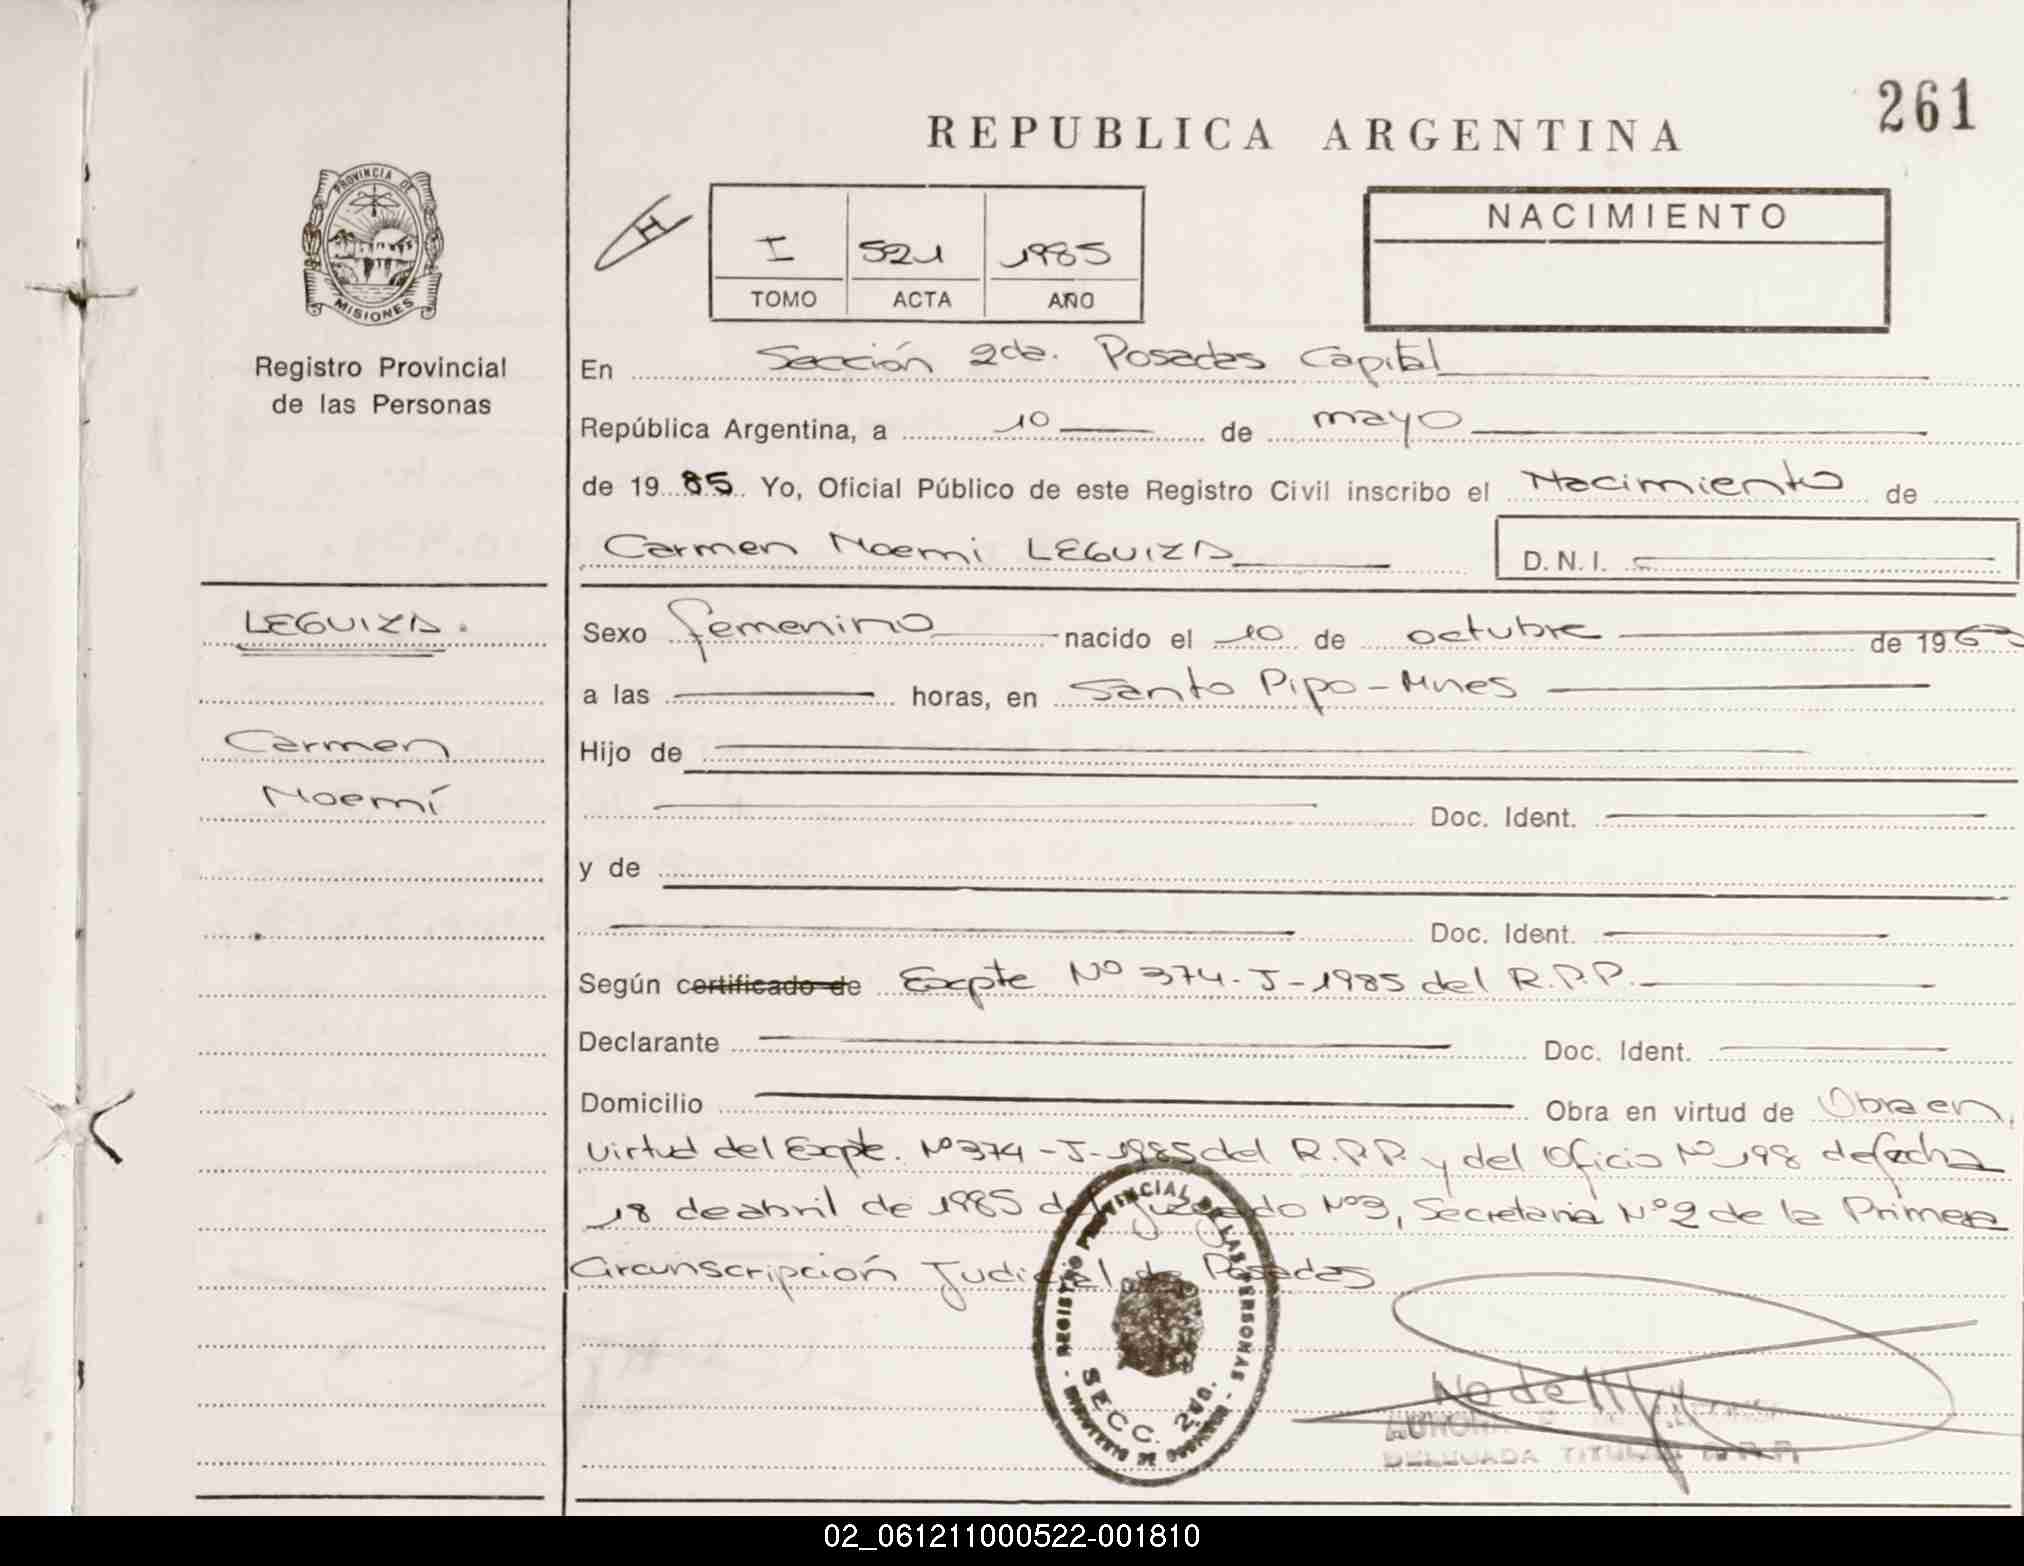 261
REPUBLICA ARGENTINA
PROVINCIA DE
MISIONES
Registro Provincial
de las Personas
H
I 521 1985
TOMO ACTA AÑO
NACIMIENTO
En Sección 2da. Posadas Capital
República Argentina, a 10 de mayo
de 1985. Yo, Oficial Público de este Registro Civil inscribo el Nacimiento de
Carmen Noemi LEGUIZA
D. N. I.
LEGUIZA.
Carmen
Noemí
Sexo femenino nacido el 10 de octubre de 1963
a las horas, en Santo Pipo - Mnes
Hijo de
Doc. Ident.
y de
Doc. Ident.
Según certificado de Expte Nº 374-J-1985 del R.P.P.
Declarante Doc. Ident.
Domicilio Obra en virtud de Obra en
virtud del Expte. Nº 374-J-1985 del R.P.P. y del Oficio Nº 198 de fecha
18 de abril de 1985 del Juzgado Nº3, Secretaria Nº2 de la Primera
Circunscripción Judicial de Posadas
REGISTRO PROVINCIAL DE LAS PERSONAS
SECC. 2da.
DELEGADA TITULAR
02_061211000522-001810